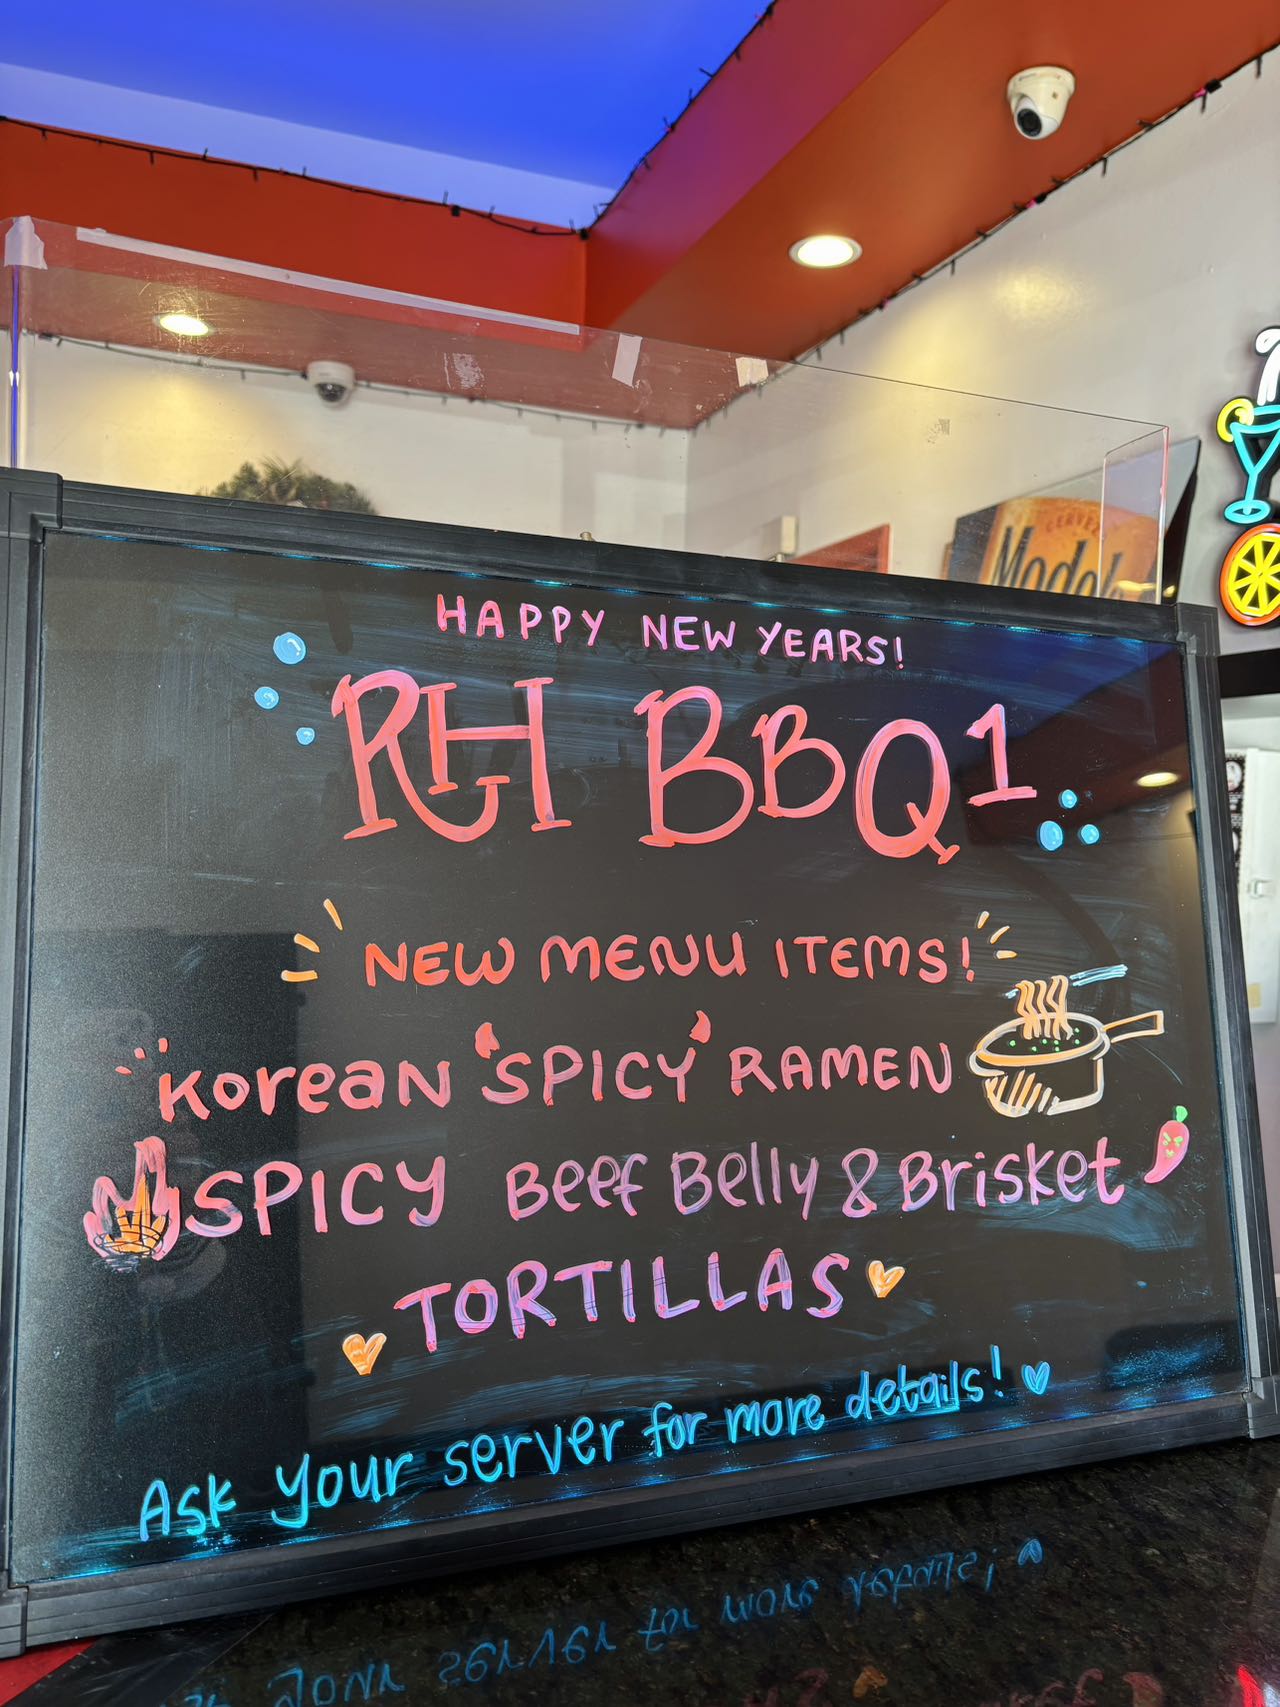 HAPPY NEW YEARS!
RH BBQ 1
NEW MENU ITEMS!
Korean 'SPICY' RAMEN
SPICY Beef Belly & Brisket
TORTILLAS
Ask your server for more details!
CERVEZA
Modelo